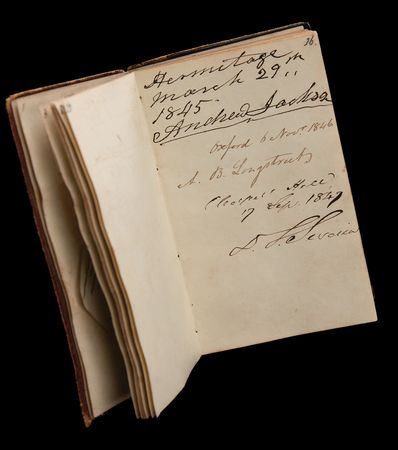 36.
Hermitage
March 29th
1845.
Andrew Jackson
Oxford 6 Novr. 1846
A. B. Longstreet
Hall
17 Sep. 1847